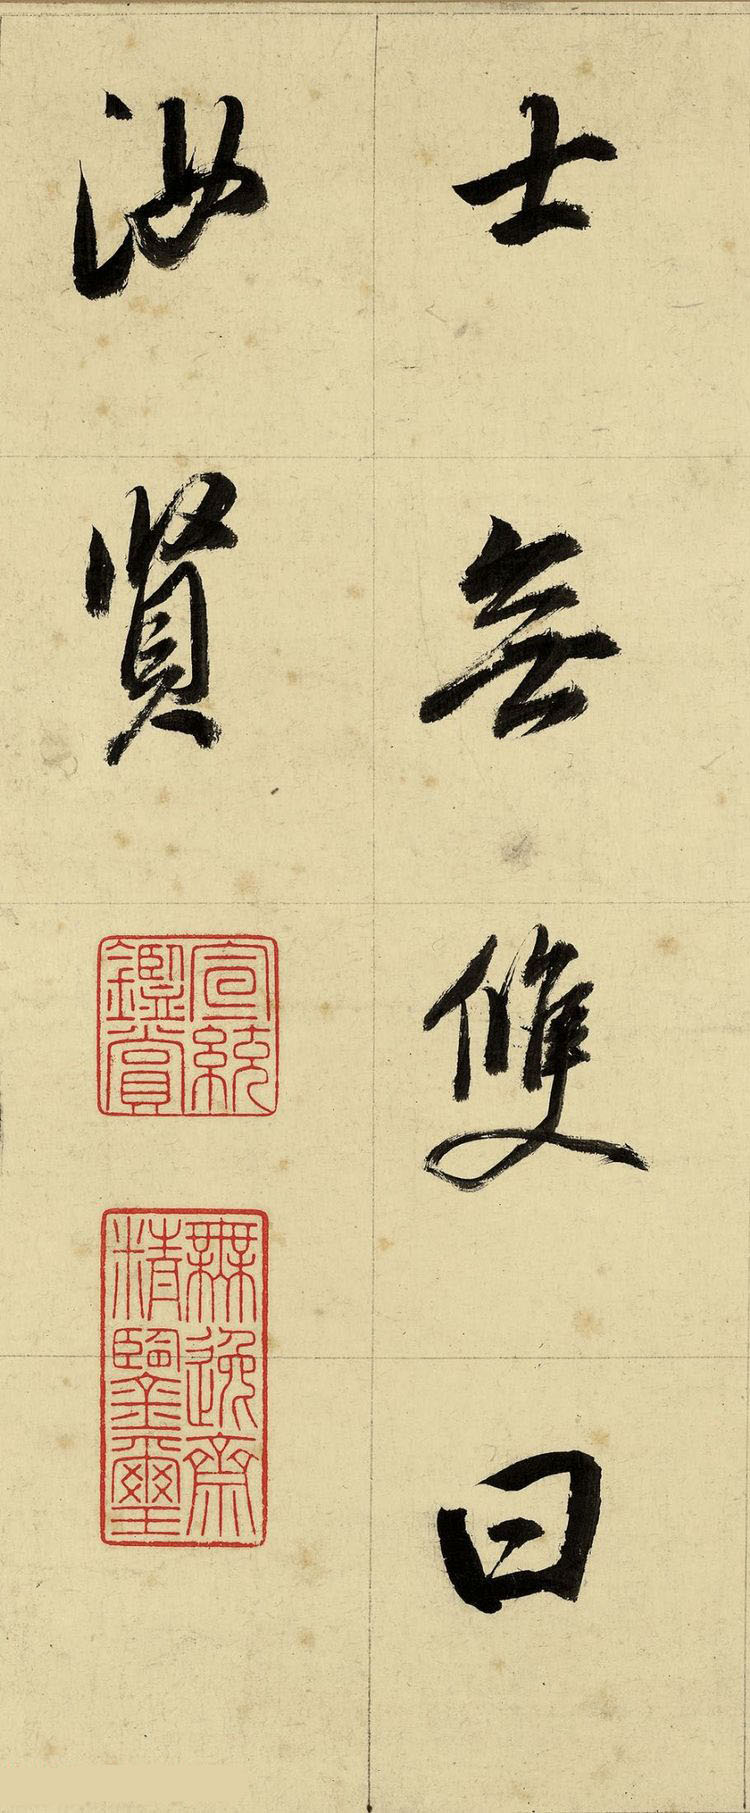 士無雙曰
汝賢
宣統鑑賞
無逸齋精鑒璽